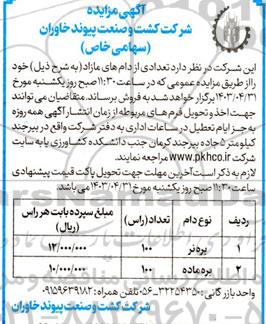 آگهی مزایده
شرکت کشت و صنعت پیوند خاوران
(سهامی خاص)
این شرکت در نظر دارد تعدادی از دام های مازاد (به شرح ذیل) خود
را از طریق مزایده عمومی که در ساعت ۱۱:۳۰ صبح روز یکشنبه مورخ
۱۴۰۳/۰۴/۳۱ برگزار خواهد شد به فروش برساند. متقاضیان می توانند
جهت اخذ و تحویل فرم های مربوطه از زمان انتشار آگهی همه روزه
به جز ایام تعطیل در ساعات اداری به دفتر شرکت واقع در بیرجند
کیلومتر ۵ جاده بیرجند کرمان جنب دانشکده کشاورزی یا به سایت
شرکت www.pkhco.ir مراجعه نمایند.
لازم به ذکر است آخرین مهلت جهت تحویل پاکت قیمت پیشنهادی
ساعت ۱۱:۳۰ صبح روز یکشنبه مورخ ۱۴۰۳/۰۴/۳۱ می باشد.
ردیف نوع دام تعداد (راس) مبلغ سپرده بابت هر راس (ریال)
۱ بره نر ۱۰۰ ۱۲/۰۰۰/۰۰۰
۲ بره ماده ۱۰۰ ۱۰/۰۰۰/۰۰۰
واحد بازرگانی: ۳۲۲۵۴۳۵۰-۰۵۶ تلفن همراه: ۰۹۱۵۹۶۳۹۱۸۲
شرکت کشت و صنعت پیوند خاوران